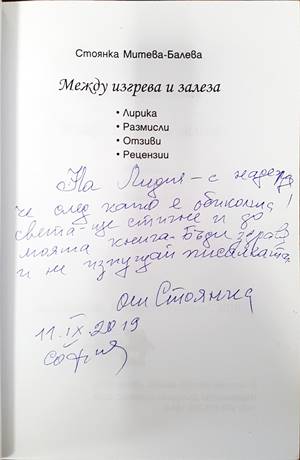 Стоянка Митева-Балева
Между изгрева и залеза
• Лирика
• Размисли
• Отзиви
• Рецензии
На Лидия – с надежда
че след като е обиколила
света – ще стигне и до
моята книга. Бъди здрава
и не изпущай писалката!
от Стоянка
11.IX.2019
София